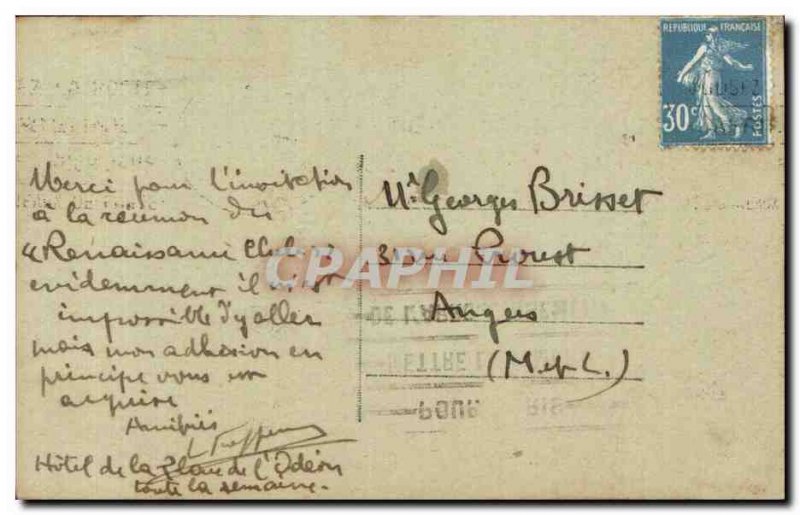 RÉPUBLIQUE FRANÇAISE
30c
POSTES
Merci pour l'invitation
à la réunion du
"Renaissance Club"
evidemment il m'est
impossible d'y aller
mais mon adhésion en
principe vous est
acquise
Amitiés
Hôtel de la Place de l'Odéon
toute la semaine.
Mr Georges Brisset
3 rue Proust
Angers
(M et L.)
CPARHIL